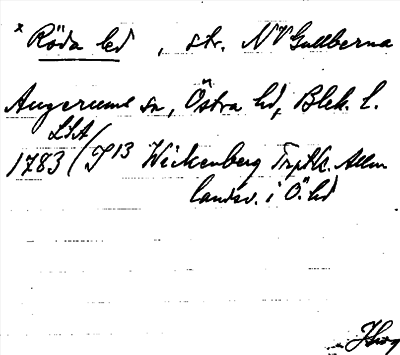 * Röda led, str. NV Gullberna
Augerums sn, Östra hd, Blek. l.
LSA
1783 / J 13 Wickenberg Trptk. Allm
landsv. i Ö. hd